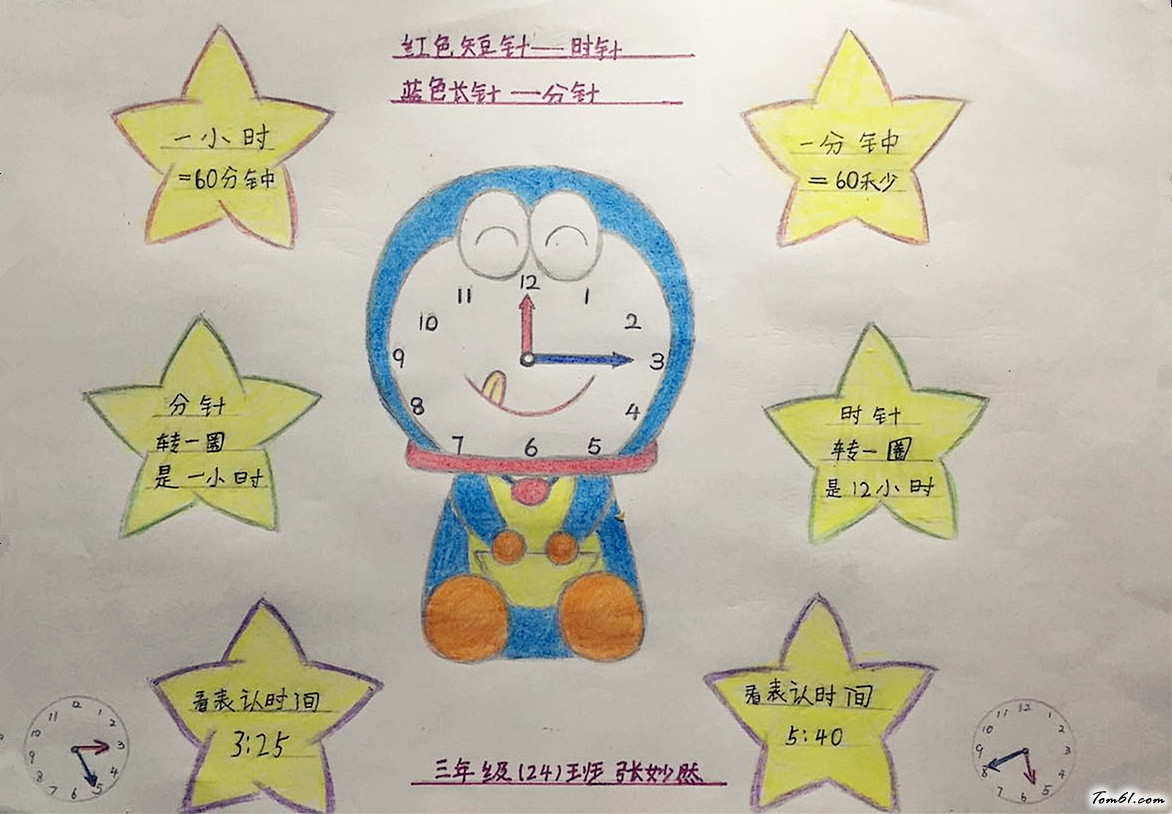 红色短针——时针
蓝色长针—分针
一小时
=60分钟
一分钟
=60秒
12
11
1
10
2
9
3
8
4
7
6
5
分针
转一圈
是一小时
时针
转一圈
是12小时
看表认时间
3:25
看表认时间
5:40
12
11
1
10
2
9
3
8
4
7
6
5
12
11
1
10
2
9
3
8
4
7
6
5
三年级(24)班 张妙然
Tom61.com